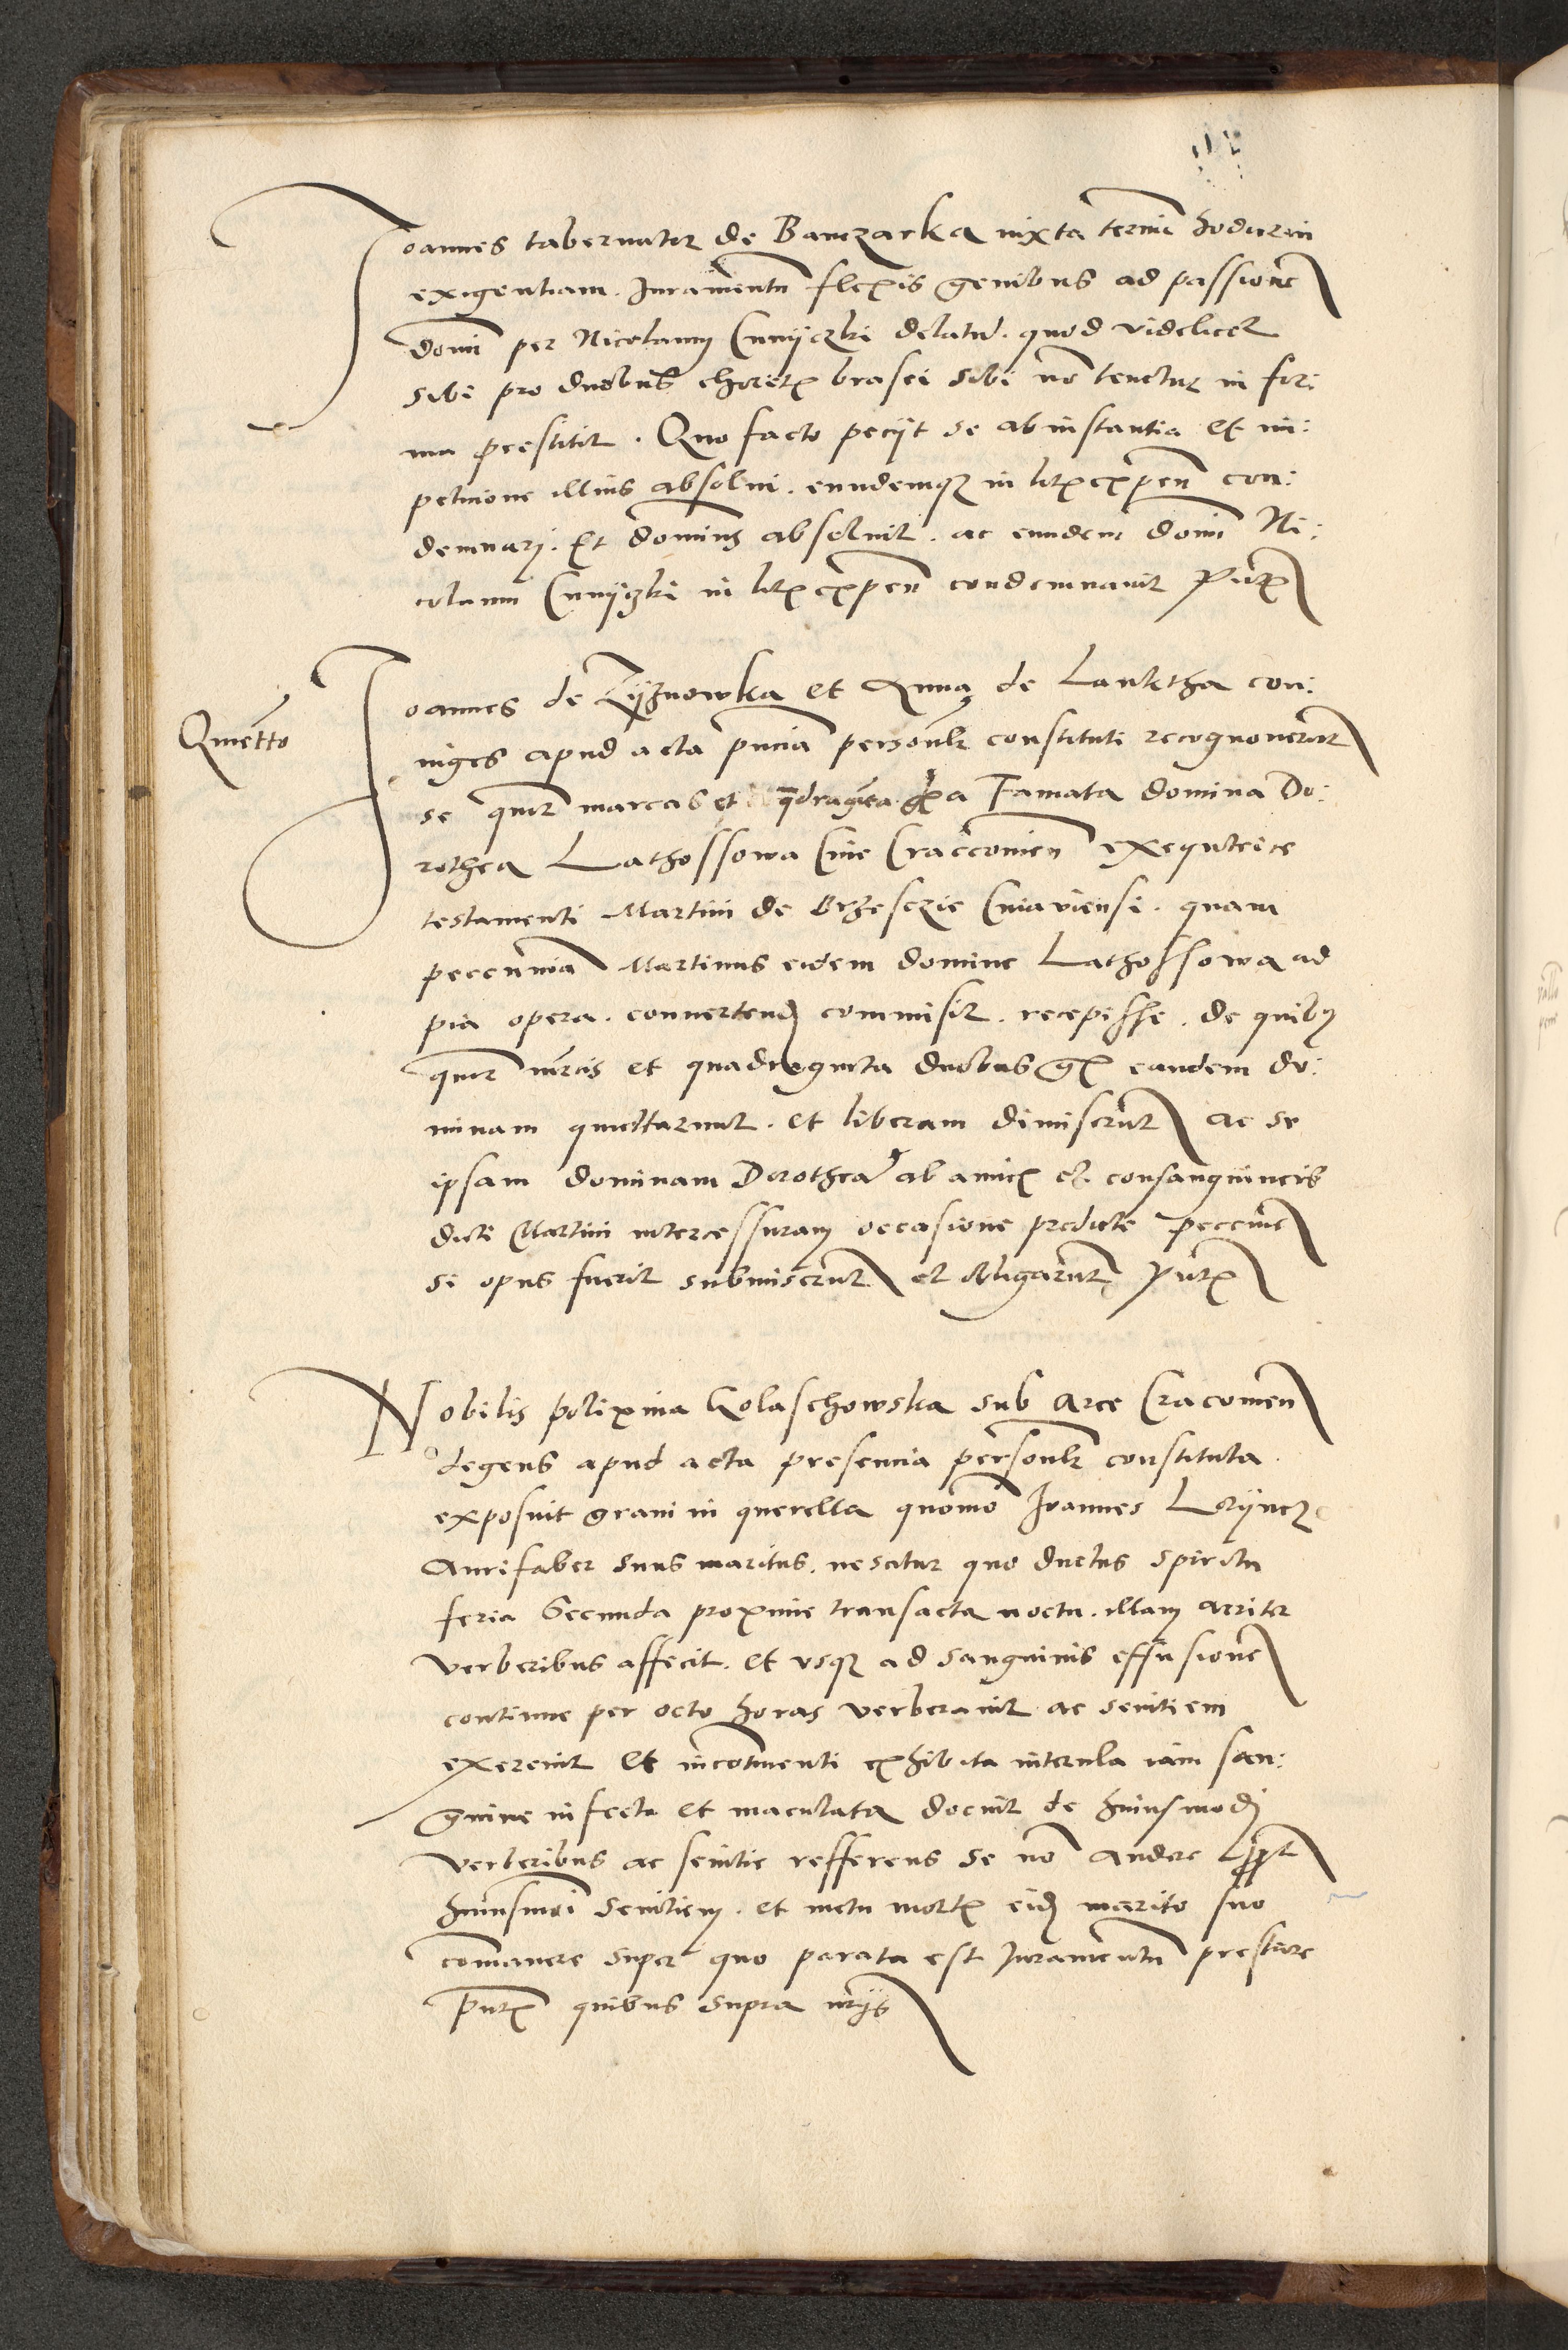 Joannes tabernator de Banczarka iuxta termi hodierni
exigentiam. Juramentu flexis genibus ad passione
domi per Nicolaum Cunyczki delatu. quod videlicet
sibi pro duobus choretis brasei sibi no tenetur in for:
ma prestitit. Quo facto peciit se ab instantia et im:
petitione illius absolvi. eundemq in litis expen con:
demnari. Et dominus absolvit. ac eundem domi Ni:
colaum Cunyczki in litis expen condemnavit Pntibus
Quietto
Joannes de Zyznowka et Anna de Lanktha con:
iuges apud acta pncia personalr constituti recognoverut
se qtuor marcas et qdraginta gr a Famata domina Do:
rothea Lathossowa Cive Craccovien exequtrice
testamenti Martini de Brzesczie Cuiaviensi. quam
peccunia Martinus eidem domine Lathossowa ad
pia opera. convertend commisit. recepisse. de quibus
qtuor mrcis et quadraginta duobus gr eandem do:
minam quiettarunt. et liberam dimiserut ac se
ipsam dominam Dorothea ab amicis et consanguineis
dicti Martini intercessuram occasione predicte peccunie
si opus fuerit submiserut et obligarut Pntibus
Nobilis polixina Golaschowska sub Arce Cracovien
degens apud acta presencia personalr constituta.
exposuit gravi in querella quomo Joannes Loryncz
Aurifaber suus maritus. nescitur quo ductus spiritu
feria Secunda proxime transacta noctu. illam acriter
verberibus affecit. et vsq ad sanguinis effusione
continue per octo horas verberavit ac sevitiem
exercuit et incontinenti exhibita interula iam san:
guine infecta et maculata docuit de huiusmodi
verberibus ac sevitie refferens se no audere ppt
huiusmoi sevitiem. et metu mortis eid marito suo
comanere super quo parata est Juramentu prestare
pntibus quibus supra